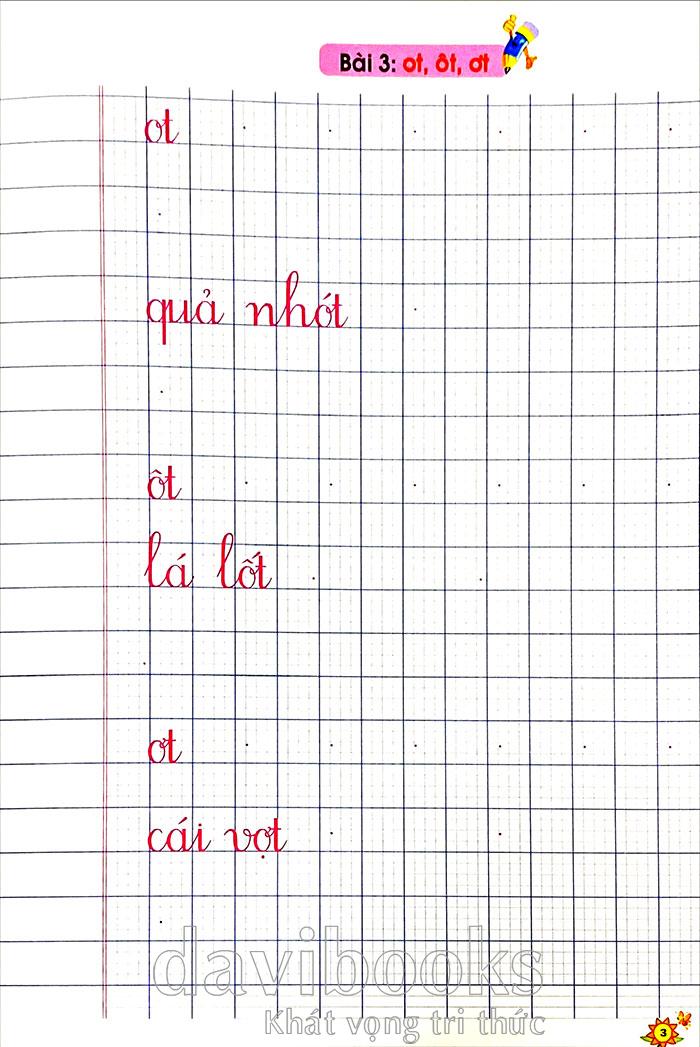 Bài 3: ot, ôt, ơt
ơt
quả nhớt
ôt
lá lốt
ơt
cái vợt
davibooks
Khát vọng tri thức
3